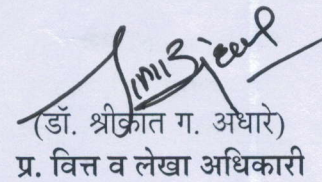 (डॉ. श्रीकांत ग. अधारे)
प्र. वित्त व लेखा अधिकारी